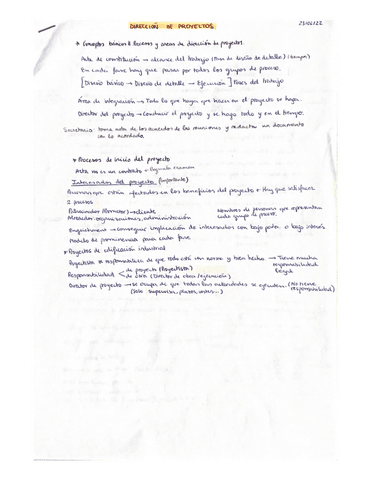 DIRECCIÓN DE PROYECTOS
23/06/22
* Conceptos básicos: Procesos y áreas de dirección de proyectos.
Acta de constitución → alcance del trabajo (Fases de diseño de detalle) (tiempo)
En cada fase hay que pasar por todos los grupos de proceso.
[Diseño básico → Diseño de detalle → Ejecución] Fases del trabajo
Área de integración → Todo lo que haya que hacer en el proyecto se haga.
Director del proyecto → Conducir el proyecto y se haga todo y en el tiempo.
Secretario: toma acta de los acuerdos de las reuniones y redacta un documento
con lo acordado.
* Procesos de inicio del proyecto
Acta no es un contrato → Pregunta examen
Interesados del proyecto (importante)
Personas que están afectados en los beneficios del proyecto + Hay que satisfacer
2 partes
Patrocinador (Promotor) → cliente
Nombres de personas que representan
Mercado: organizaciones, administración
cada grupo de
Engagement → conseguir implicación de interesados con bajo poder o bajo interés
Modelo de prominencia para cada fase
* Proyectos de edificación industrial
Proyectista es responsabilidad de que todo esté con norma y bien hecho → Tiene mucha
responsabilidad
legal
Responsabilidad < de proyecto (Proyectista)
de obra (Director de obra/ejecución)
Director de proyecto → se ocupa de que todas las actividades se ejecuten. (No tiene
responsabilidad)
(Solo supervisión, plazos, costes...)